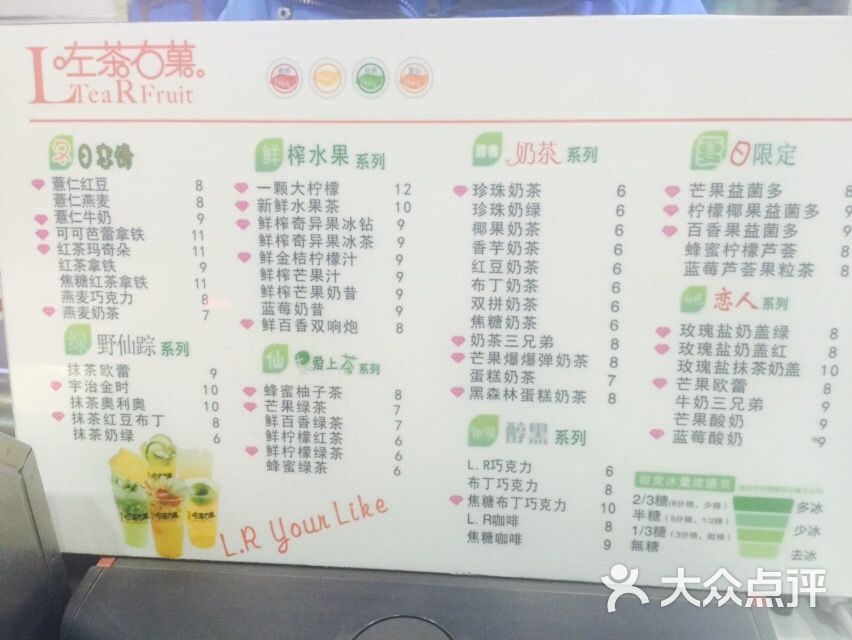 L 左茶右菓。
Tea R Fruit
冬日寒情
薏仁红豆 8
薏仁燕麦 8
薏仁牛奶 9
可可芭蕾拿铁 11
红茶玛奇朵 11
红茶拿铁 9
焦糖红茶拿铁 11
燕麦巧克力 8
燕麦奶茶 7
绿野仙踪系列
抹茶欧蕾 9
宇治金时 10
抹茶奥利奥 10
抹茶红豆布丁 8
抹茶奶绿 6
鲜榨水果系列
一颗大柠檬 12
新鲜水果茶 10
鲜榨奇异果冰钻 9
鲜榨奇异果冰茶 9
鲜金桔柠檬汁 9
鲜榨芒果汁 9
鲜榨芒果奶昔 9
蓝莓奶昔 9
鲜百香双响炮 8
仙 爱上茶系列
蜂蜜柚子茶 8
芒果绿茶 7
鲜百香绿茶 7
鲜柠檬红茶 6
鲜柠檬绿茶 6
蜂蜜绿茶 6
L.R Your Like
奶茶系列
珍珠奶茶 6
珍珠奶绿 6
椰果奶茶 6
香芋奶茶 6
红豆奶茶 6
布丁奶茶 6
双拼奶茶 6
焦糖奶茶 6
奶茶三兄弟 8
芒果爆爆弹奶茶 8
蛋糕奶茶 7
黑森林蛋糕奶茶 8
醇黑系列
L.R巧克力 6
布丁巧克力 8
焦糖布丁巧克力 10
L.R咖啡 8
焦糖咖啡 9
夏日限定
芒果益菌多 8
柠檬椰果益菌多 9
百香果益菌多 8
蜂蜜柠檬芦荟 8
蓝莓芦荟果粒茶 8
恋人系列
玫瑰盐奶盖绿 8
玫瑰盐奶盖红 8
玫瑰盐抹茶奶盖 10
芒果欧蕾 8
牛奶三兄弟 9
芒果酸奶 9
蓝莓酸奶 9
甜度冰量建議表
2/3糖(8分糖、少糖) 多冰
半糖(5分糖、1/2糖) 少冰
1/3糖(3分糖、微糖)
無糖 去冰
大众点评